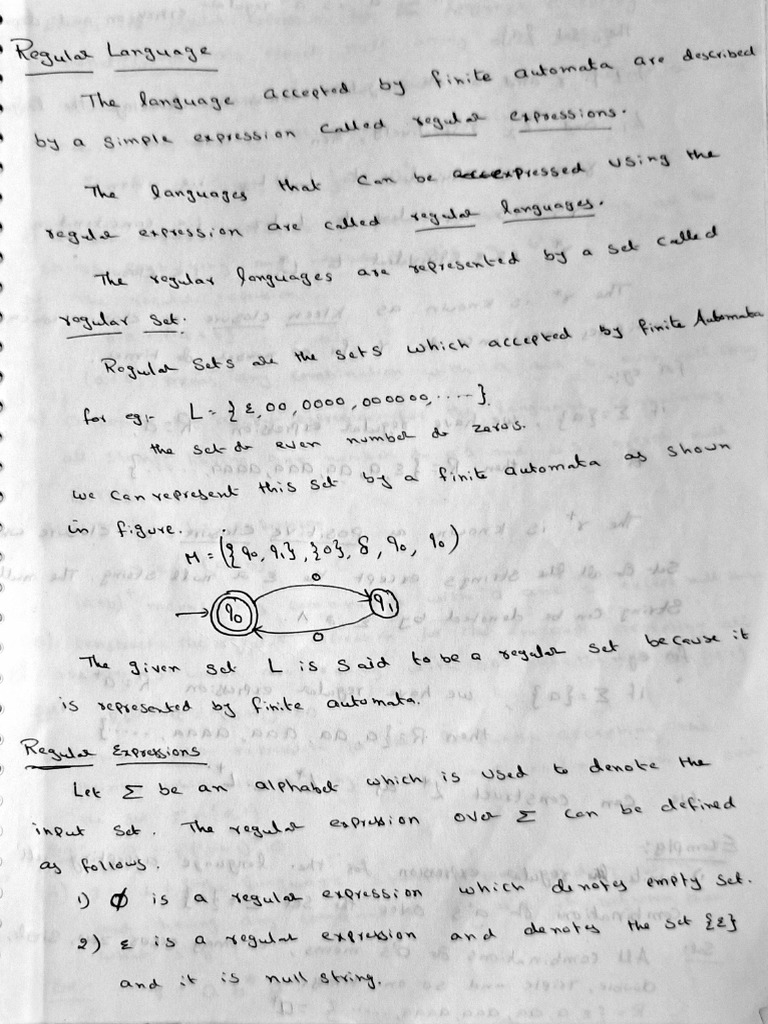 Regular Language
The language accepted by finite automata are described
by a simple expression called regular expressions.
The languages that can be expressed using the
regular expression are called regular languages.
The regular languages are represented by a set called
regular set.
Regular Sets are the sets which accepted by finite Automata
for eg:- L = { ε, 00, 0000, 000000, ..... }.
the set of even number of zeros.
we can represent this set by a finite automata as shown
in figure.
M = ({q0, q1}, {0}, δ, q0, q0)
0
q0 q1
0
The given set L is said to be a regular set because it
is represented by finite automata.
Regular Expressions
Let Σ be an alphabet which is used to denote the
input set. The regular expression over Σ can be defined
as follows.
1) ϕ is a regular expression which denotes empty set.
2) ε is a regular expression and denotes the set {ε}
and it is null string.